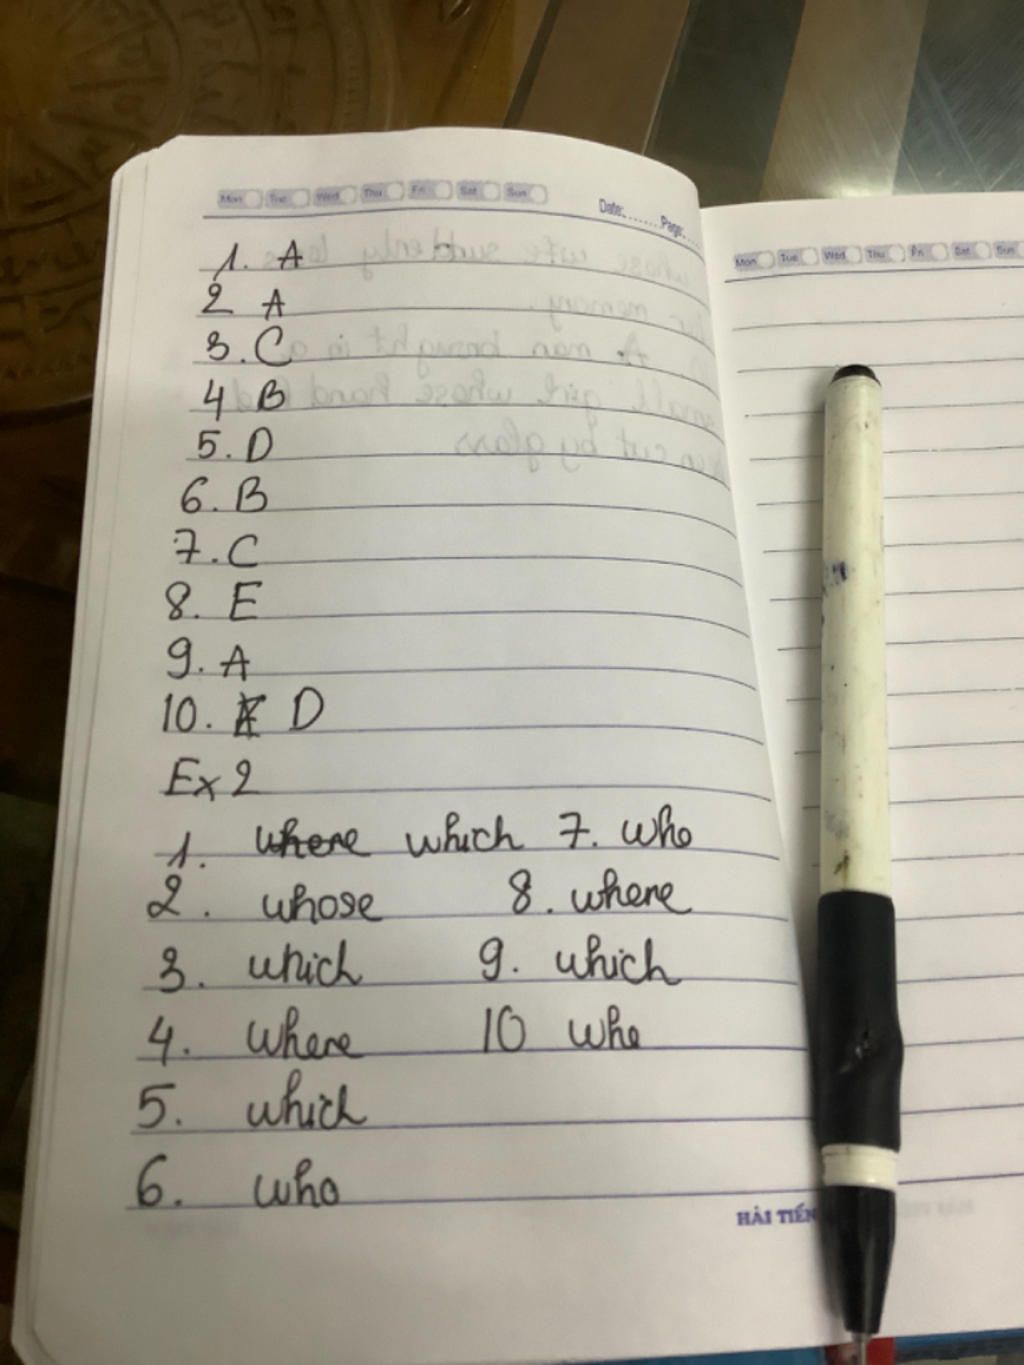 Mon Tue Wed Thu Fri Sat Sun
Date:....... Page:....
1. A
2 A
3. C
4 B
5. D
6. B
7. C
8. E
9. A
10. D
Ex 2
1. where which 7. who
2. whose 8. where
3. which 9. which
4. where 10 who
5. which
6. who
HẢI TIẾN
Mon Tue Wed Thu Fri Sat Sun